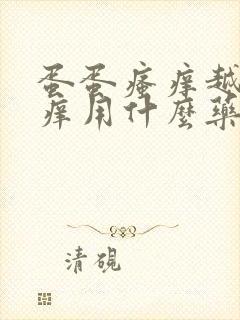 蛋蛋瘙痒越
痒用什麼藥
清硯